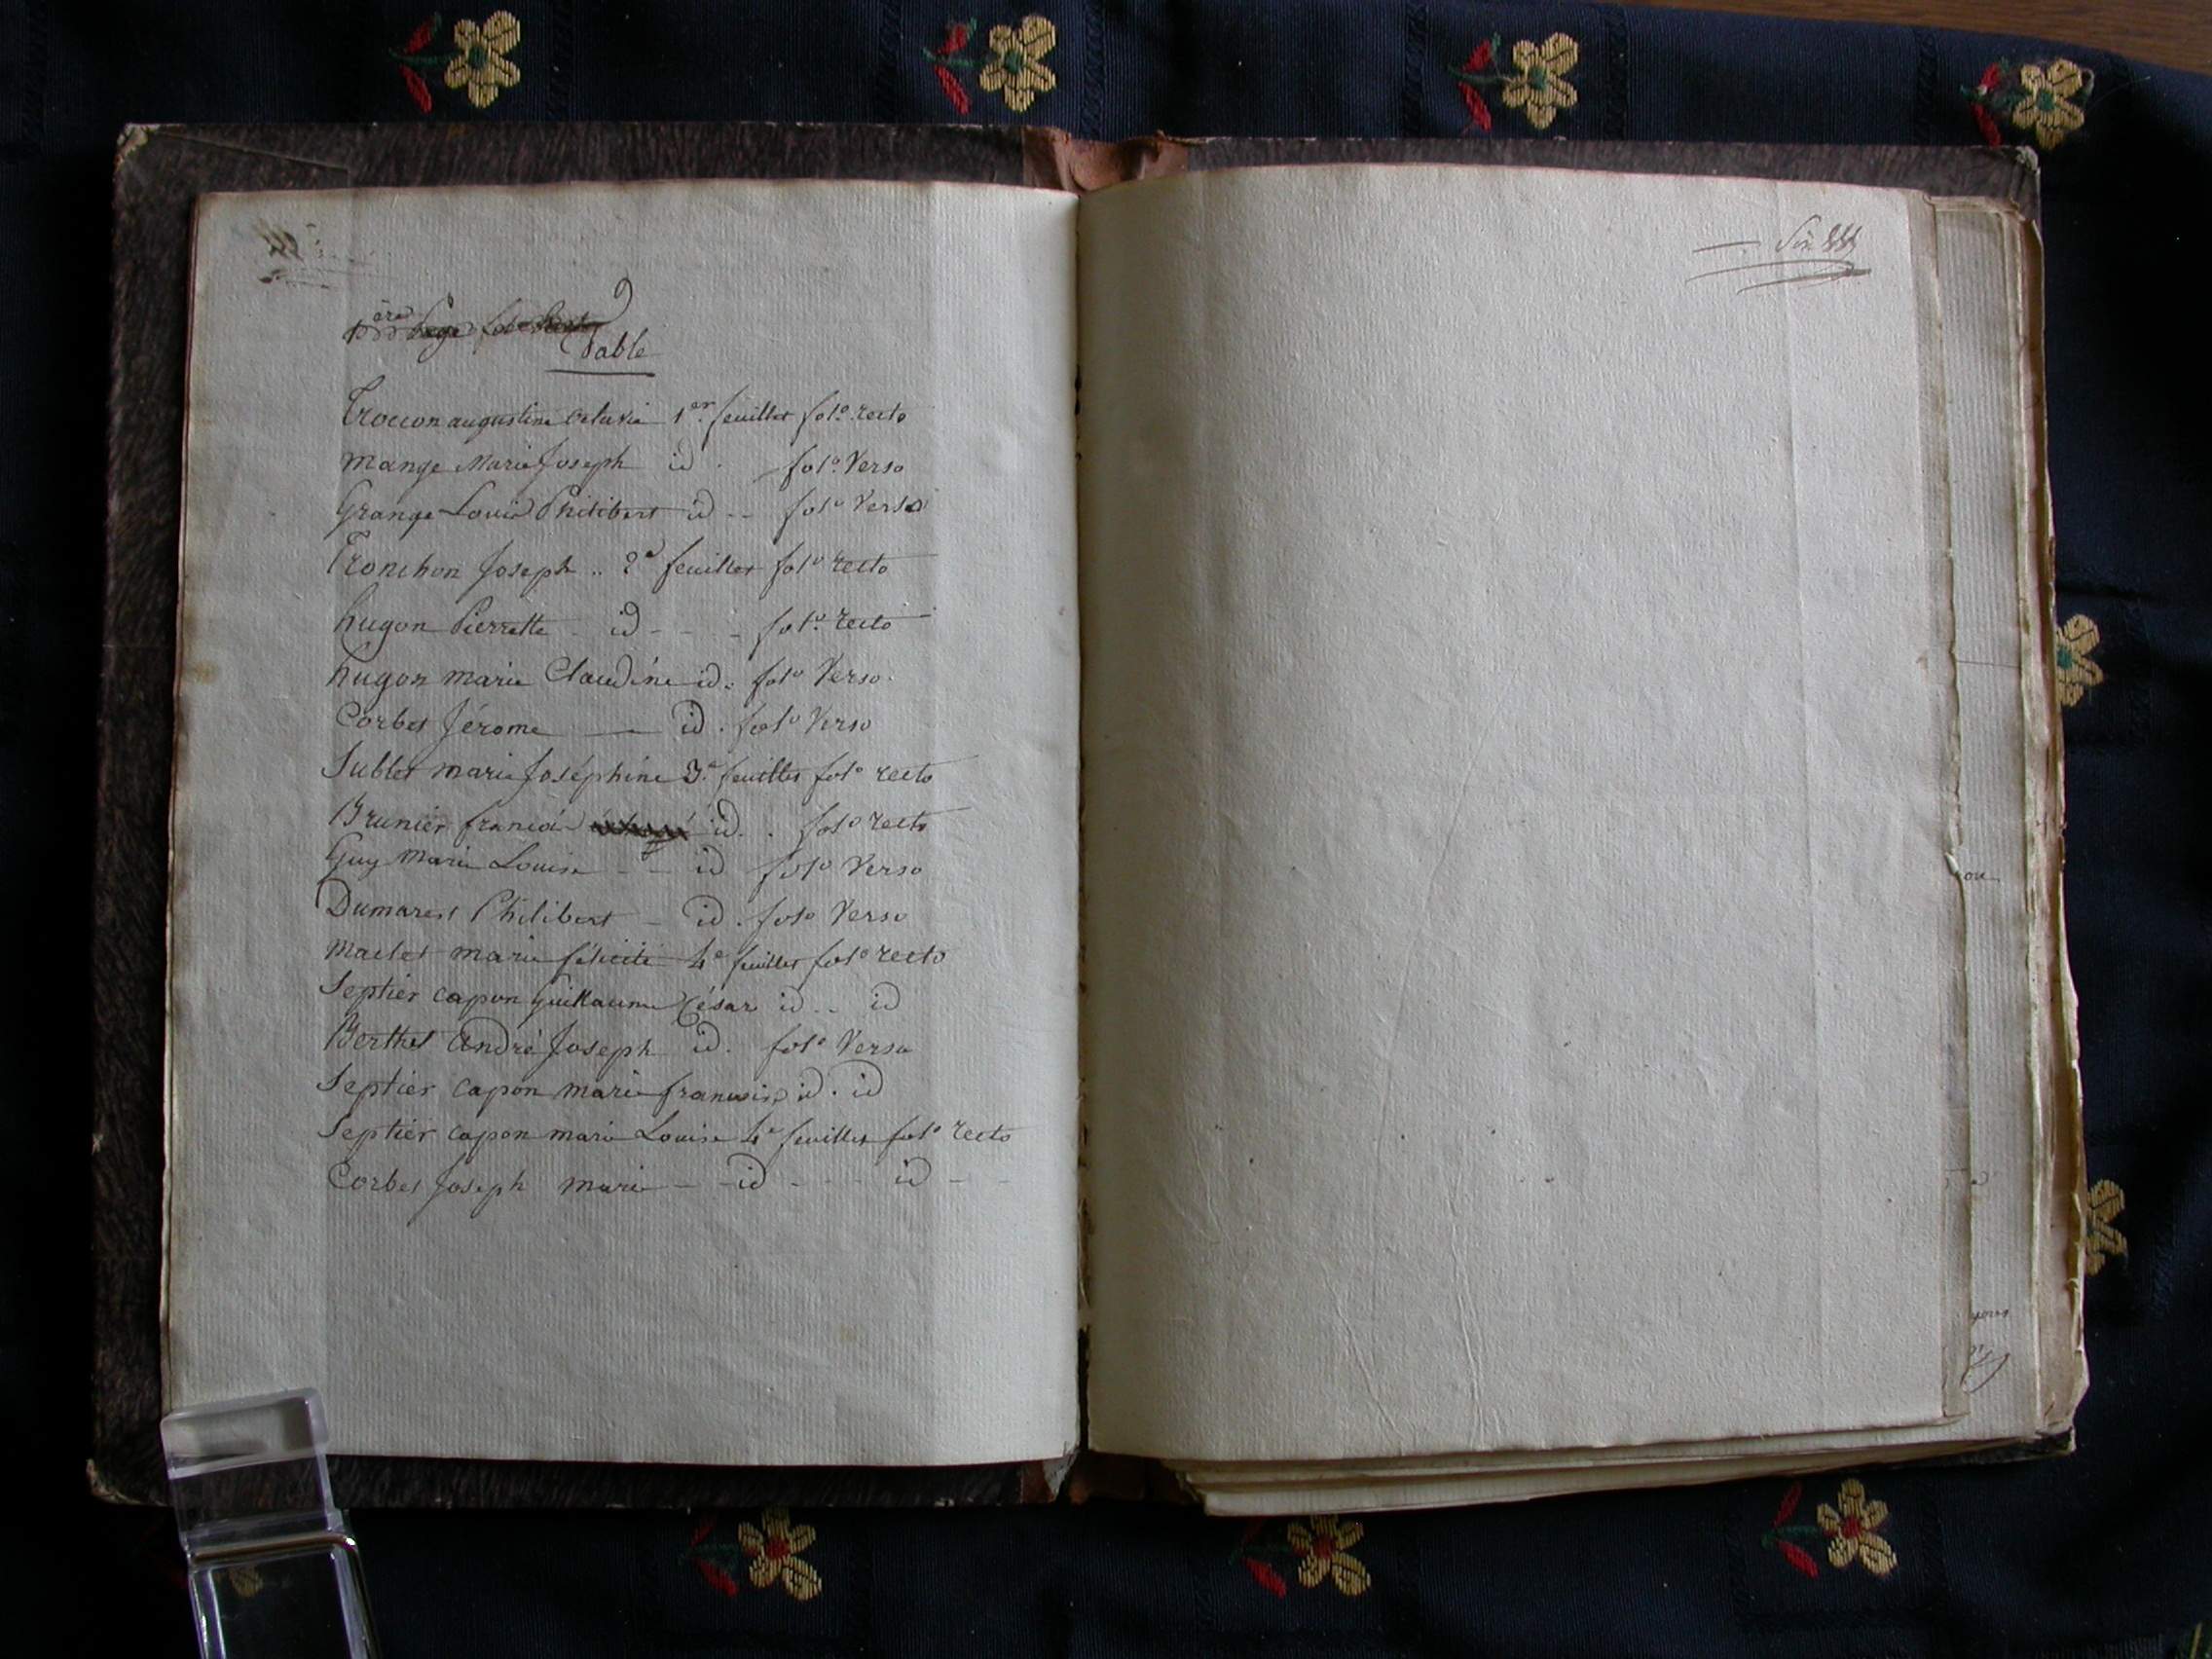 Table
Troccon augustine octavie 1er. feuillet folo. recto
mange Marie Joseph id. folo. Verso
Grange Louis Philibert id -- folo Verso
Tronchon Joseph .. 2e feuillet folo recto
hugon Pierrette - id - - - folo. recto
hugon marie Claudine id. folo Verso.
Corbet Jérome — id. folo Verso
Sublet marie Joséphine 3.e feuillet folo recto
Brunier francois id. . folo recto
Guy Marie Louise - - id folo Verso
Dumarest Philibert - id. folo Verso
Maclet marie félicité 4e feuillet folo recto
Septier capon Guillaume César id .. id
Berthet André Joseph id. folo Verso
Septier capon marie francois id. id
Septier capon marie Louise 4e feuillet folo recto
Corbet Joseph marie - - id - - - id - -
ou